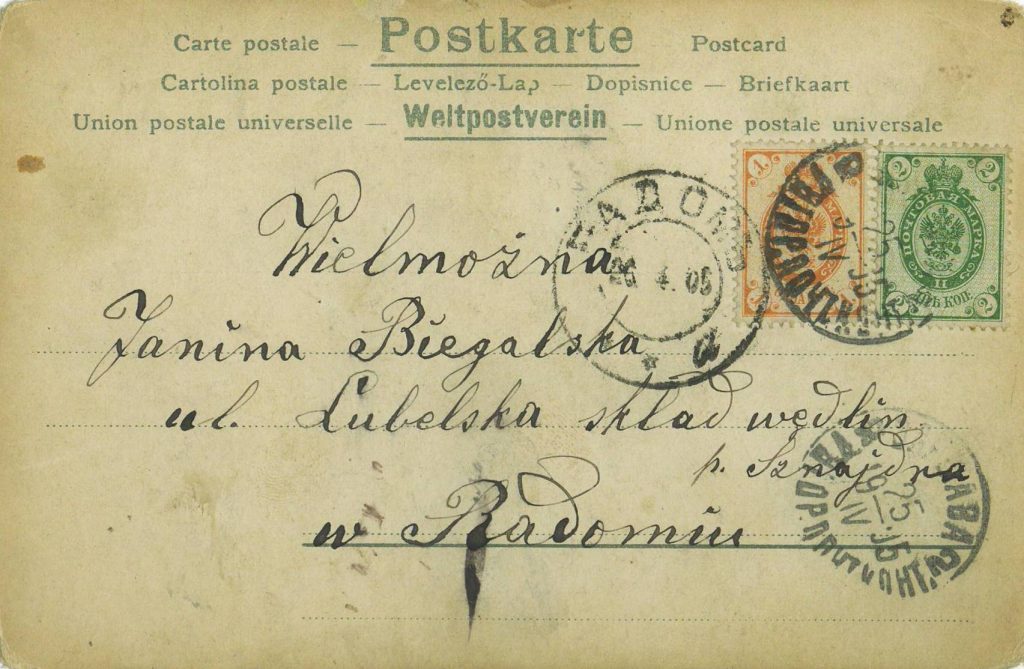 Carte postale — Postkarte Postcard
Cartolina postale — Levelező-Lap — Dopisnice — Briefkaart
Union postale universelle — Weltpostverein — Unione postale universale
1 2 2
ПОЧТОВАЯ МАРКА
ДВѢ КОП.
2 2
РАДОМЪ
4.05
Wielmożna
Janina Biegalska
ul. Lubelska skład wędlin
p. Sznajdra
w Radomiu
25
IV